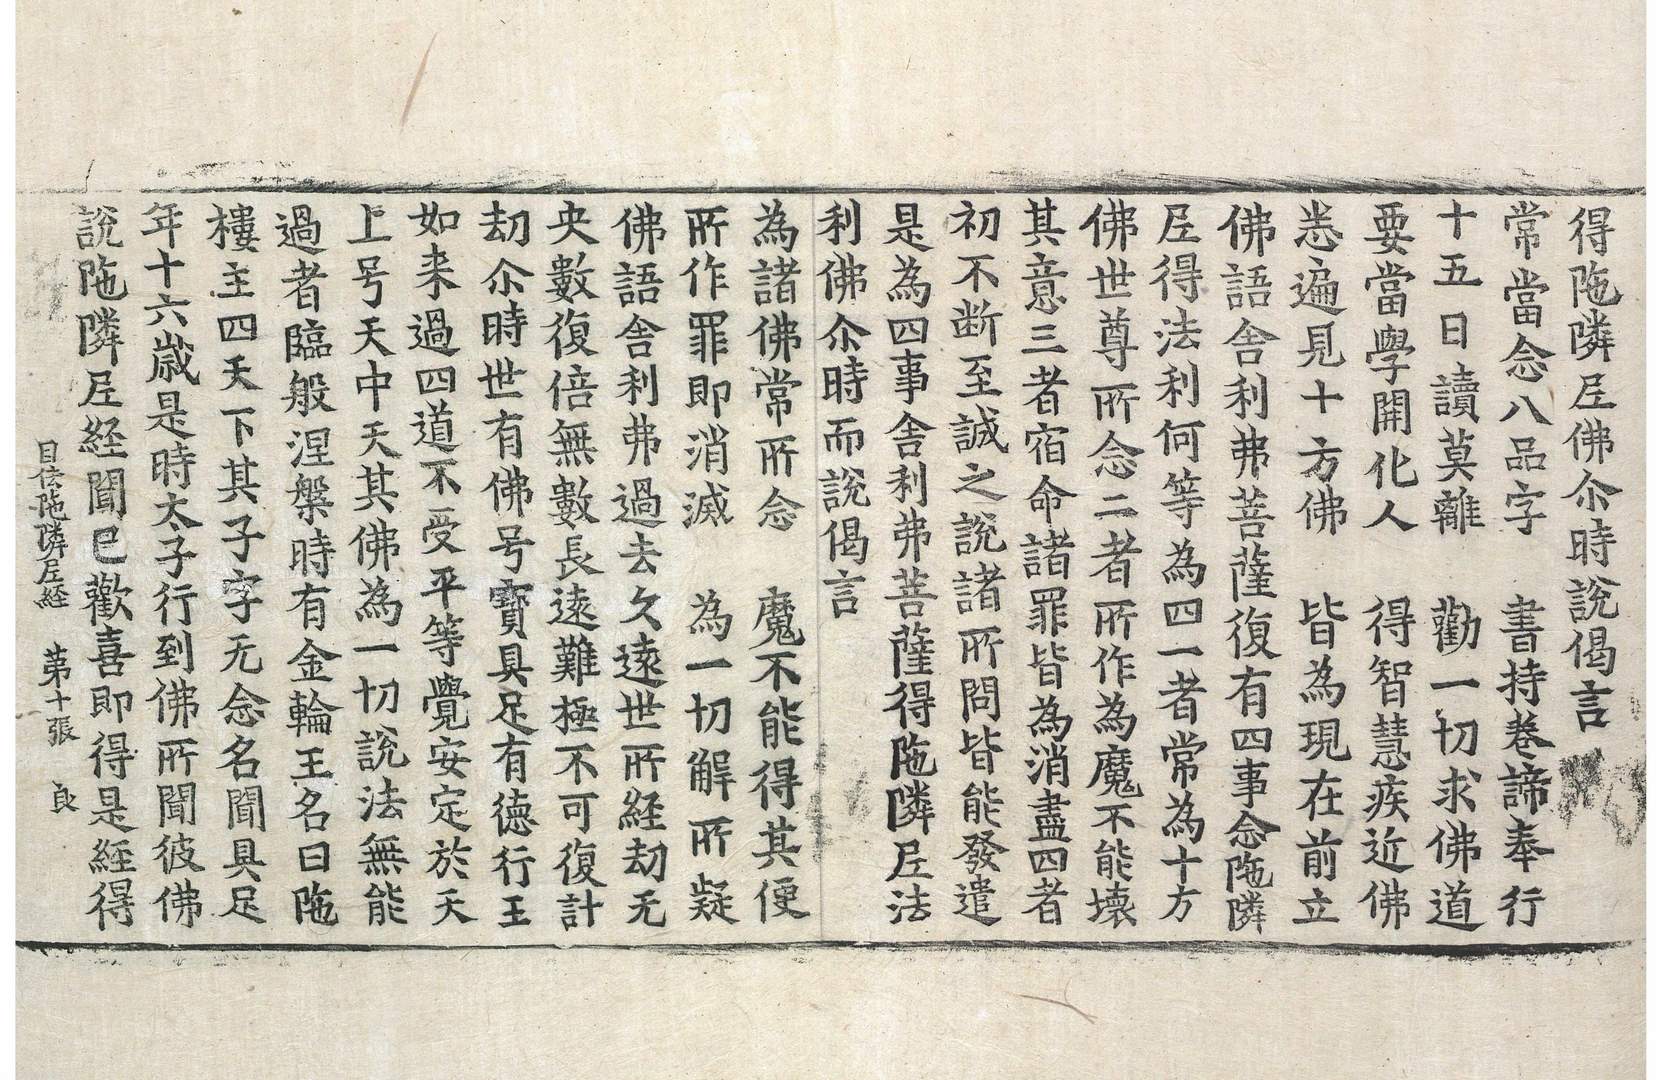 得陁隣尼佛尒時說偈言
常當念八品字　書持卷諦奉行
十五日讀莫離　勸一切求佛道
要當學開化人　得智慧疾近佛
悉遍見十方佛　皆為現在前立
佛語舍利弗菩薩復有四事念陁隣
尼得法利何等為四一者常為十方
佛世尊所念二者所作為魔不能壞
其意三者宿命諸罪皆為消盡四者
初不斷至誠之說諸所問皆能發遣
是為四事舍利弗菩薩得陁隣尼法
利佛尒時而說偈言
為諸佛常所念　魔不能得其便
所作罪即消滅　為一切解所疑
佛語舍利弗過去久遠世所経劫无
央數復倍無數長遠難極不可復計
劫尒時世有佛号寶具足有德行王
如来過四道不受平等覺安定於天
上号天中天其佛為一切說法無能
過者臨般涅槃時有金輪王名曰陁
樓主四天下其子字无念名聞具足
年十六歲是時太子行到佛所聞彼佛
說陁隣尼経聞已歡喜即得是経得
目佉陁隣尼経　第十張　良